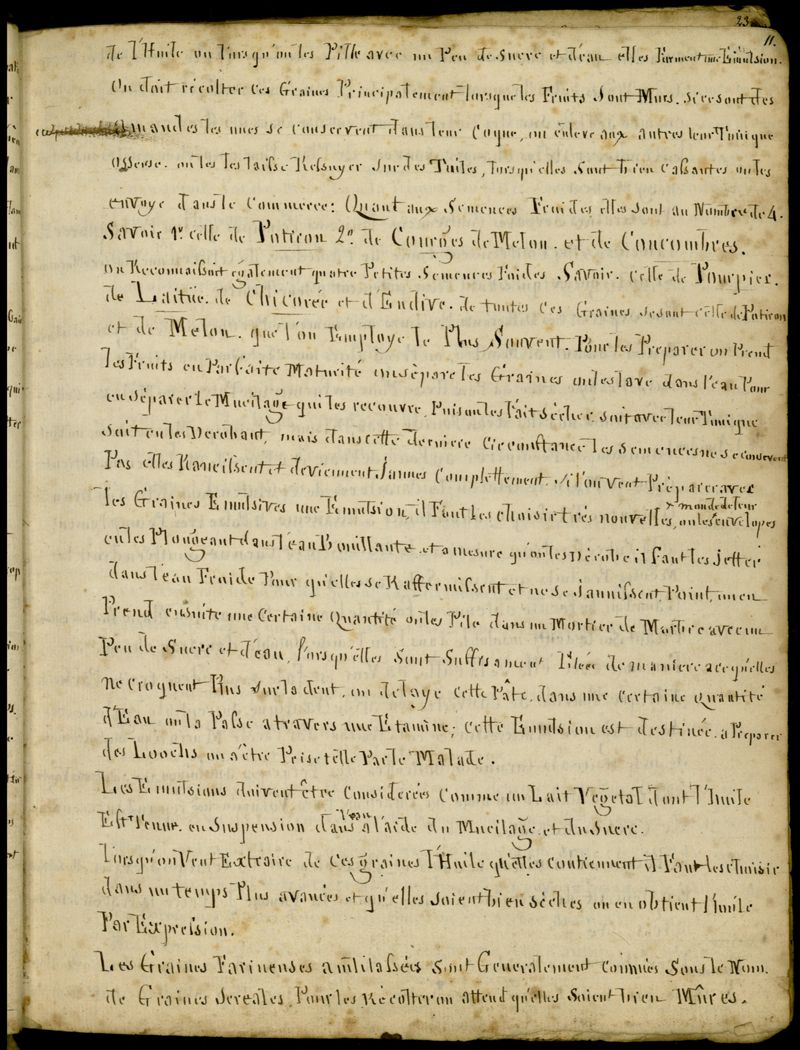 23
11.
de l'Huile ou l'orsqu'on les Pille avec un Peu de Sucre et d'eau elles Forment une Emulsion.
On doit récolter ces Graines Principalement lorsque les Fruits Sont Murs. Si ce sont des
Amandes les unes se Conservent dans leur Coque, on enleve aux autres leur Tunique
Osseuse. on les laisse Ressuyer Sur des Toiles, lorsqu'elles Sont bien Cassantes on les
envoye dans le Commerce: Quant aux Semences Froides elles Sont au Nombre de 4.
Savoir 1º celle de Potiron 2º de Courges de Melon. et de Concombres.
on Reconnaissait également quatre Petites Semences Froides Savoir. Celle de Pourpier.
de Laitue. de Chicorée et d'Endive. de toutes ces Graines se sont celle de Potiron
et de Melon. que l'on Employe le Plus Souvent. Pour les Preparer on Prend
les Fruits en Parfaite Maturité on sépare les Graines on les lave dans l'eau Pour
en Séparer le Mucilage qui les recouvre, Puis on les Fait Sécher, soit avec leur Tunique
Soit en les Dérobant, mais dans cette derniere Circonstance les Semences ne se conservent
Pas elles Rancissent et deviennent Jaunes Complettement. Si l'on veut Préparer avec
les Graines Emulsives une Emulsion, il Faut les choisir très nouvelles, on monde de leur
enveloppes
en les Plongeant dans l'eau Bouillante et a mesure qu'on les Dérobe il faut les jetter
dans l'eau Froide Pour qu'elles se Raffermissent et ne se Jaunissent Point, on en
Prend ensuite une Certaine Quantité on les Pile dans un Mortier de Marbre avec un
Peu de Sucre et d'eau, lorsqu'elles Sont Suffisament Pilées de maniere a ce qu'elles
ne Croquent Plus Sur la dent. on delaye cette Pâte, dans une certaine Quantité
d'Eau on la Passe a travers une Etamine; cette Emulsion est destinée. a Preparer
des Loochs ou a être Prise telle Par le Malade.
Les Emulsions doivent être Considerées Comme un Lait Végetal dont l'Huile
Est Tenue en Suspension dans l'eau a l'aide du Mucilage et du Sucre.
lorsqu'on Veut Extraire de Ces graines l'Huile qu'elles Contiennent il Faut les choisir
dans un temps Plus avancés et qu'elles Soient bien sèches on en obtient l'huile
Par Expression.
Les Graines Farineuses amilassées Sont Generalement Connues Sous le Nom
de Graines Sereales, Pour les Récolter on attend qu'elles Soient bien Mûres.